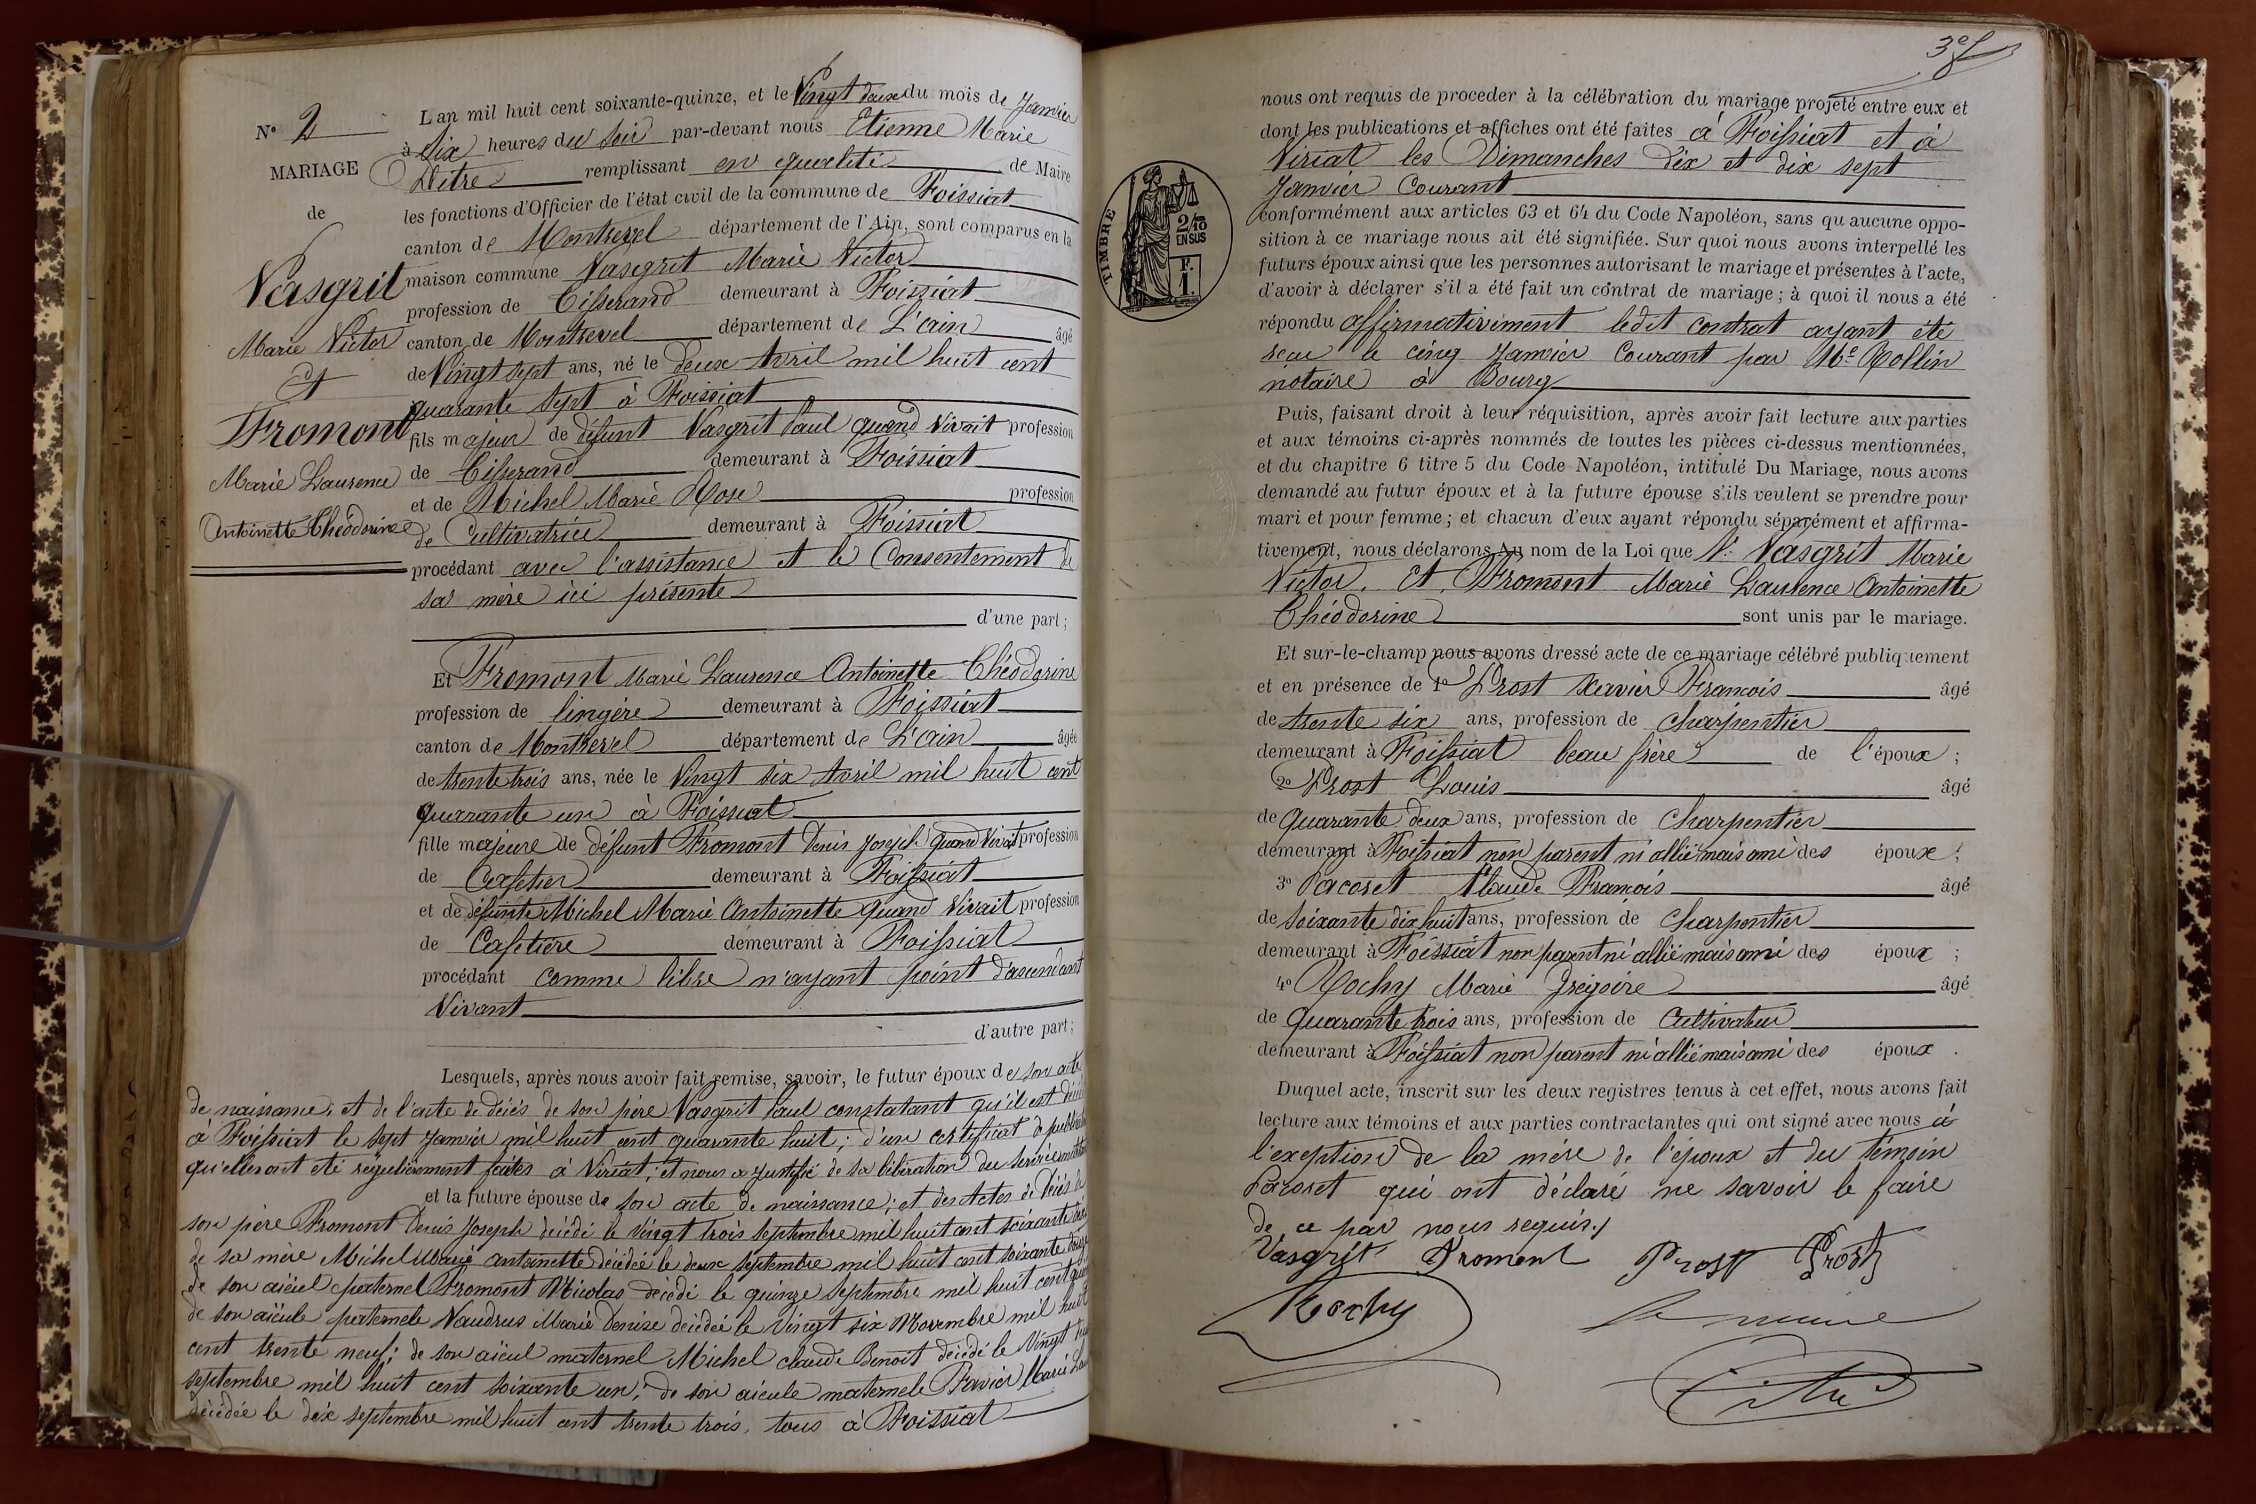 N° 2
MARIAGE
de
Vasgrit
Marie Victor
Et
Fromont
Marie Laurence
Antoinette Théodorine
L'an mil huit cent soixante-quinze, et le Vingt deux du mois de Janvier
à Six heures du Soir par-devant nous Etienne Marie
Ditre remplissant en qualité de Maire
les fonctions d'Officier de l'état civil de la commune de Foissiat
canton de Montrevel département de l'Ain, sont comparus en la
maison commune Vasgrit Marie Victor
profession de Tisserand demeurant à Foissiat
canton de Montrevel département de L'ain âgé
de Vingt sept ans, né le deux Avril mil huit cent
quarante sept à Foissiat
fils majeur de défunt Vasgrit Paul quand Vivait profession
de Tisserand demeurant à Foissiat
et de Michel Marie Rose profession
de Cultivatrice demeurant à Foissiat
procédant avec l'assistance et le Consentement de
sa mère ici présente
d'une part;
Et Fromont Marie Laurence Antoinette Théodorine
profession de lingère demeurant à Foissiat
canton de Montrevel département de L'ain âgée
de trente trois ans, née le Vingt six Avril mil huit cent
quarante un à Foissiat
fille majeure de défunt Fromont Denis Joseph quand Vivait profession
de Cafetier demeurant à Foissiat
et de défunte Michel Marie Antoinette quand Vivait profession
de Cafetière demeurant à Foissiat
procédant comme libre n'ayant point d'ascendant
Vivant
d'autre part;
Lesquels, après nous avoir fait remise, savoir, le futur époux de son acte
de naissance; et de l'acte de décès de son père Vasgrit Paul constatant qu'il est
à Foissiat le sept Janvier mil huit cent quarante huit; d'un certificat de
qu'elles ont été régulièrement faites à Viriat; et nous a justifié de sa libération du service
et la future épouse de son acte de naissance; et des Actes de Décès de
son père Fromont Denis Joseph décédé le Vingt trois Septembre mil huit cent soixante
de sa mère Michel Marie antoinette décédée le deux Septembre mil huit cent soixante
de son aïeul paternel Fromont Nicolas décédé le quinze septembre mil huit cent
de son aïeule paternele Vaudrus Marie Denise décédée le Vingt six Novembre mil huit
cent trente neuf; de son aïeul maternel Michel claude Benoît décédé le Vingt
septembre mil huit cent soixante un; de son aieule maternele Favier Marie
décédée le dix septembre mil huit cent trente trois, tous à Foissiat
3e f
TIMBRE
2/10
EN SUS
F.
1.
nous ont requis de proceder à la célébration du mariage projeté entre eux et
dont les publications et affiches ont été faites à Foissiat et à
Viriat les Dimanches dix et dix sept
Janvier Courant
conformément aux articles 63 et 64 du Code Napoléon, sans qu aucune oppo-
sition à ce mariage nous ait été signifiée. Sur quoi nous avons interpellé les
futurs époux ainsi que les personnes autorisant le mariage et présentes à l'acte,
d'avoir à déclarer s'il a été fait un contrat de mariage; à quoi il nous a été
répondu affirmativement ledit contrat ayant été
recu le cinq Janvier Courant par Me Rollin
notaire à Bourg
Puis, faisant droit à leur réquisition, après avoir fait lecture aux parties
et aux témoins ci-après nommés de toutes les pièces ci-dessus mentionnées,
et du chapitre 6 titre 5 du Code Napoléon, intitulé Du Mariage, nous avons
demandé au futur époux et à la future épouse s'ils veulent se prendre pour
mari et pour femme; et chacun d'eux ayant répondu séparément et affirma-
tivement, nous déclarons Au nom de la Loi que Vasgrit Marie
Victor. Et Fromont Marie Laurence Antoinette
Théodorine sont unis par le mariage.
Et sur-le-champ nous avons dressé acte de ce mariage célébré publiquement
et en présence de 1° Prost Xavier François âgé
de trente six ans, profession de Charpentier
demeurant à Foissiat beau frère de l'époux;
2° Prost Louis âgé
de quarante deux ans, profession de Charpentier
demeurant à Foissiat non parent ni allié mais ami des époux;
3° Pacoret Claude François âgé
de soixante dix huit ans, profession de Charpentier
demeurant à Foissiat non parent ni allié mais ami des époux;
4° Rochy Marie Grégoire âgé
de quarante trois ans, profession de Cultivateur
demeurant à Foissiat non parent ni allié mais ami des époux.
Duquel acte, inscrit sur les deux registres tenus à cet effet, nous avons fait
lecture aux témoins et aux parties contractantes qui ont signé avec nous à
l'exeption de la mère de l'époux et du témoin
Pacoret qui ont déclaré ne savoir le faire
de ce par nous requis./
Vasgrit Fromont Prost Prost
Rochy
le maire
Ditre